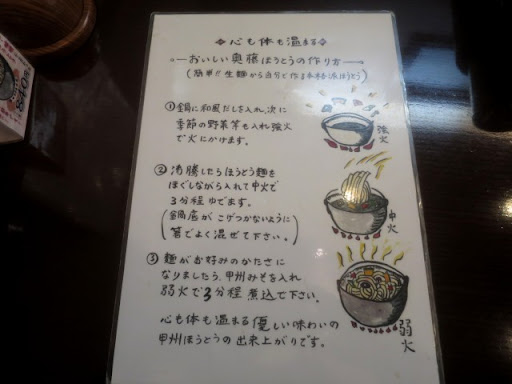 心も体も温まる
おいしい奥藤ほうとうの作り方
(簡単!!生麺から自分で作る本格派ほうとう)
①鍋に和風だしを入れ、次に
季節の野菜等も入れ強火
で火にかけます。
強火
②沸騰したらほうとう麺を
ほぐしながら入れて中火で
3分程ゆでます。
(鍋底がこげつかないように
箸でよく混ぜて下さい。)
中火
③麺がお好みのかたさに
なりましたら、甲州みそを入れ
弱火で3分程煮込で下さい。
弱火
心も体も温まる優しい味わいの
甲州ほうとうの出来上がりです。